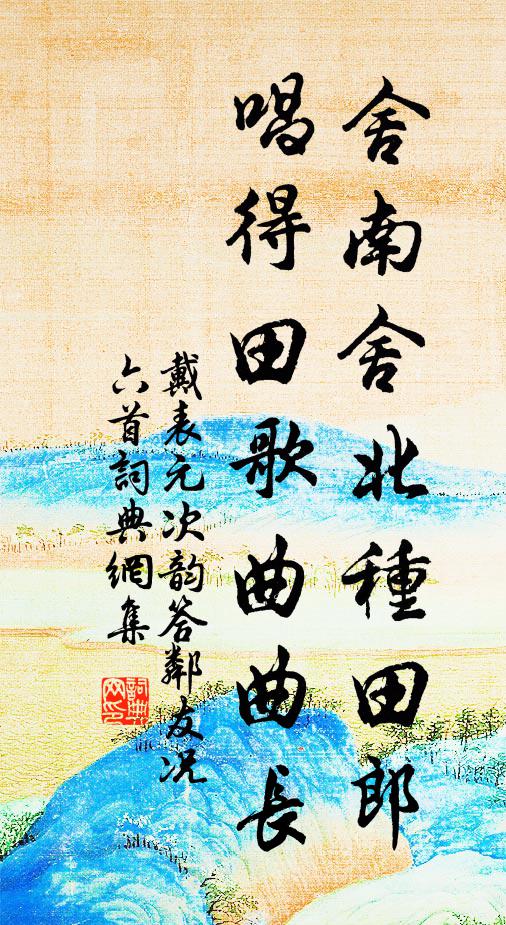 舍南舍北種田郎
唱得田歌曲曲長
戴表元次韵答鄰友况
六首詞典網集
詞典
网印